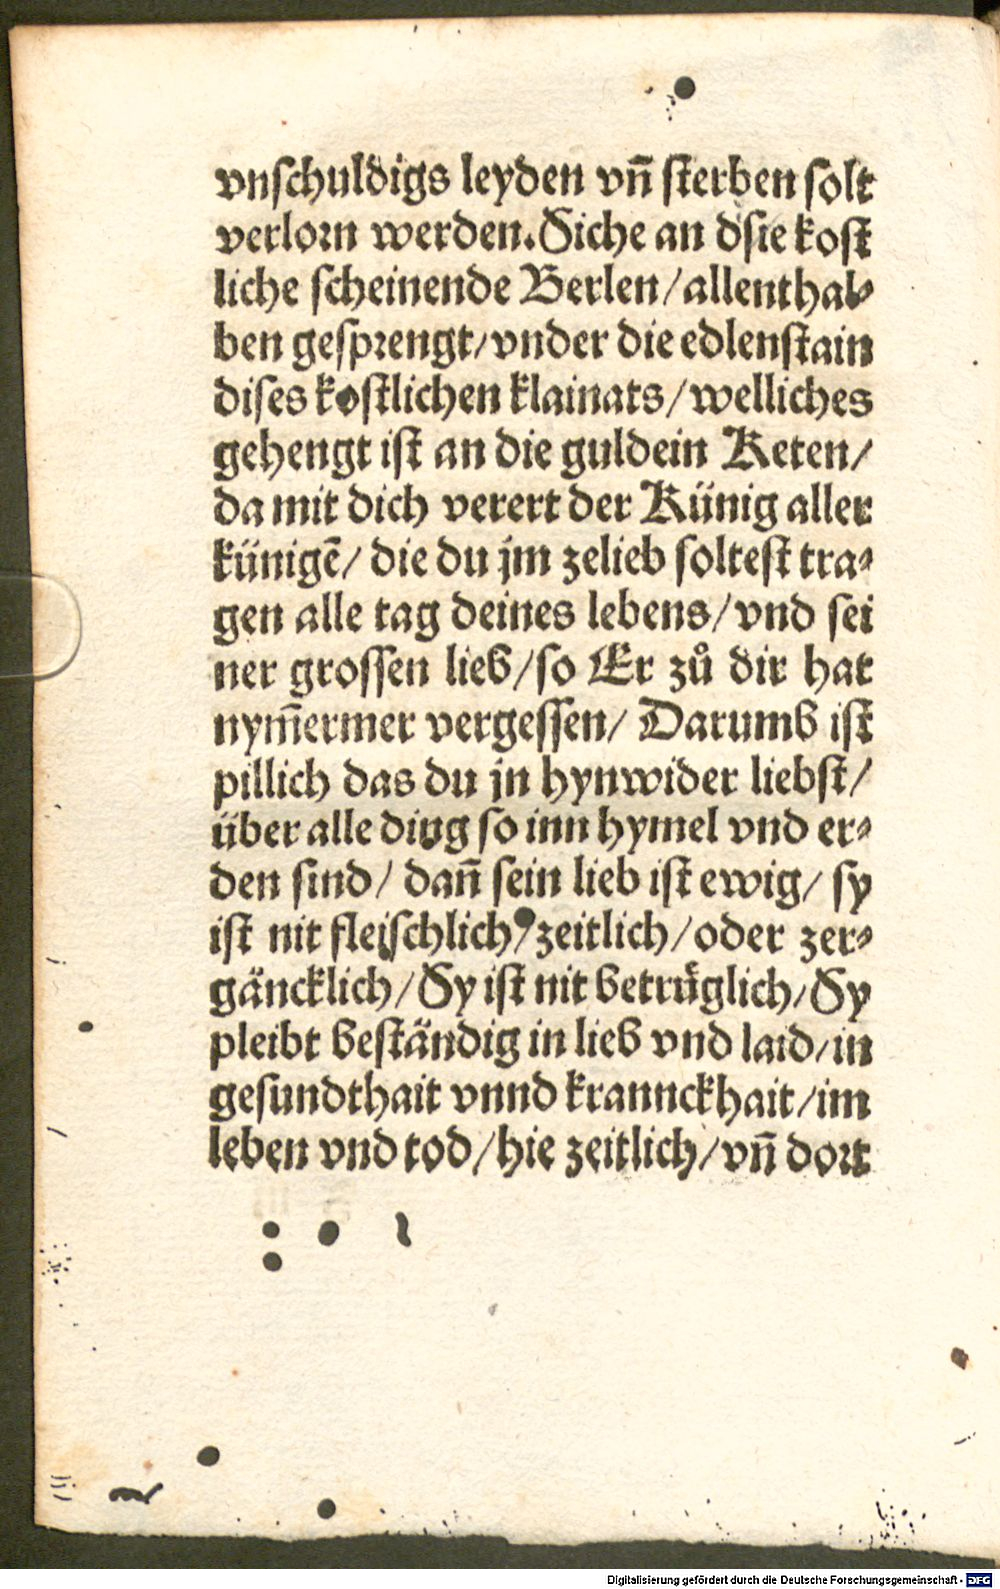 vnschuldigs leyden vñ sterben solt
verlorn werden. Siche an dsie kost
liche scheinende Berlen / allenthal⸗
ben gesprengt / vnder die edlenstain
dises kostlichen klainats / welliches
gehengt ist an die guldein Keten /
da mit dich verert der Künig aller
künigẽ / die du jm zelieb soltest tra⸗
gen alle tag deines lebens / vnd sei
ner grossen lieb / so Er zů dir hat
nym̃ermer vergessen / Darumb ist
pillich das du jn hynwider liebst /
über alle ding so inn hymel vnd er⸗
den sind / dañ sein lieb ist ewig / sy
ist nit fleischlich / zeitlich / oder zer⸗
gäncklich / Sy ist nit betrüglich / Sy
pleibt beständig in lieb vnd laid / in
gesundthait vnnd kranckhait / im
leben vnd tod / hie zeitlich / vñ dort
Digitalisierung gefördert durch die Deutsche Forschungsgemeinschaft - DFG